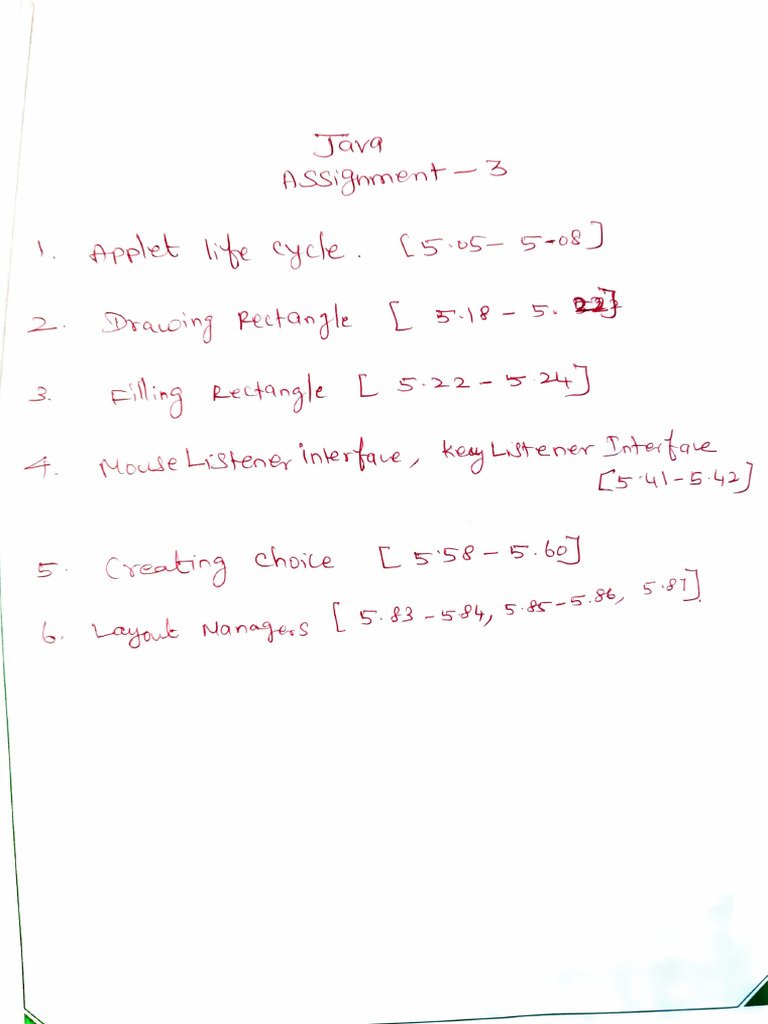 Java
Assignment - 3
1. Applet life cycle. [5.05 - 5.08]
2. Drawing Rectangle [ 5.18 - 5. 22]
3. Filling Rectangle [ 5.22 - 5.24]
4. MouseListener interface, KeyListener Interface
[5.41 - 5.42]
5. Creating choice [5.58 - 5.60]
6. Layout Managers [ 5.83 - 5.84, 5.85 - 5.86, 5.87].